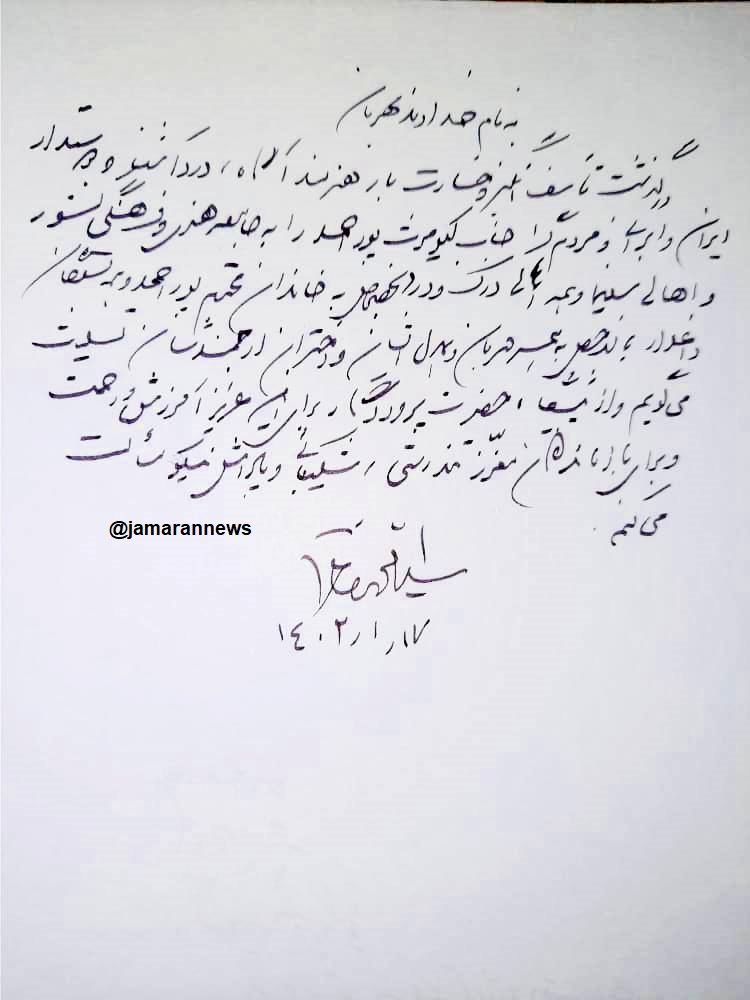 به نام خداوند مهربان
درگذشت تأسف انگیز و خسارت بار هنرمند آگاه، درد آشنا و دوستدار
ایران و ایرانی و مردم جناب کیومرث پوراحمد را به جامعه هنری و فرهنگی کشور
و اهالی سینما و همه اهالی درک و درد بخصوص به خاندان محترم پوراحمد و بستگان
داغدار بالاخص به همسر مهربان و دختران ارجمندشان تسلیت
می‌گویم و از پیشگاه حضرت پروردگار برای آن عزیز آمرزش و رحمت
و برای بازماندگان معزز تندرستی، شکیبایی و پاداش نیکو مسألت
می‌کنم.
@jamarannews
سید محمد خاتمی
۱۴۰۲/۱/۱۷